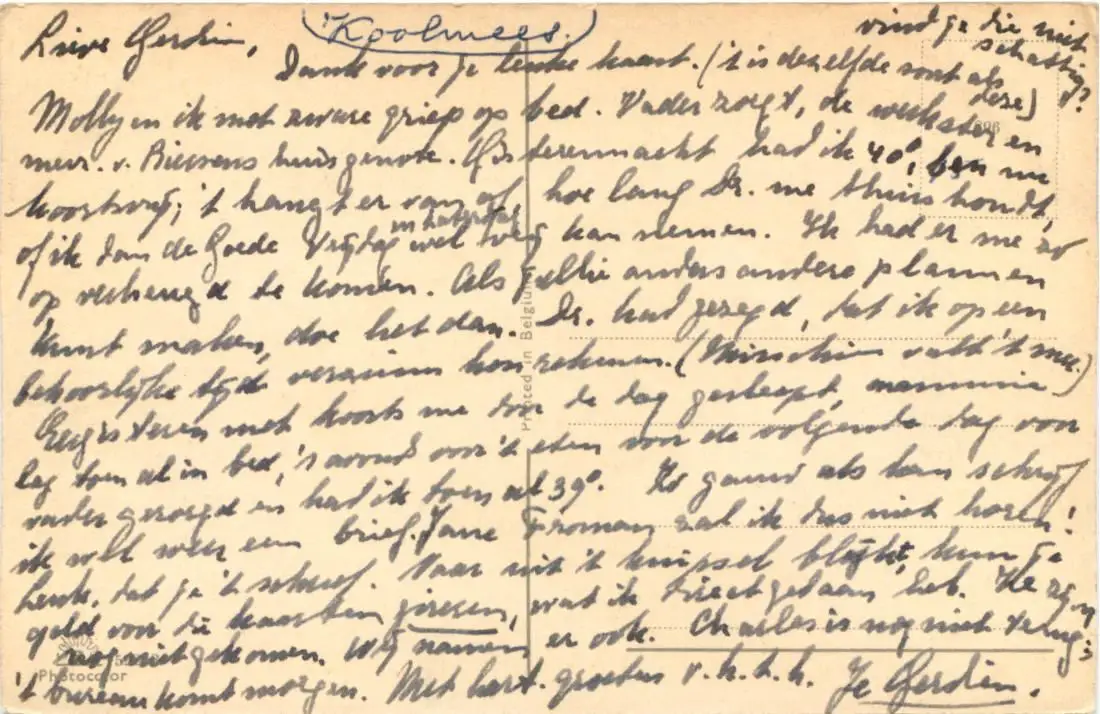 Koolmees.
vind je die niet
schattig?
Lieve Gerdien,
Dank voor je leuke kaart. ('t is dezelfde soort als
deze)
Molly en ik met zware griep op bed. Vader zorgt, de werkster en
mevr. v. huisgenote. Gisterennacht had ik 40°, ben nu
koortsvrij; 't hangt er van af hoe lang Dr. me thuis houdt,
of ik dan de Goede Vrijdag en Zaterdag wel vrij kan nemen. Ik had er me zo
op verheugd te komen. Als jullie anders andere plannen
kunt maken, doe het dan. Dr. had gezegd, dat ik op een
behoorlijke tijd verzuim kon rekenen. (Misschien valt 't mee.)
Eergisteren met koorts me door de dag gesleept, mammie
lag toen al in bed, 's avonds voor 't eten voor de volgende dag van
vader gezorgd en had ik toen al 39°. Zo gauw als kan schrijf
ik wel weer een brief. Jane Froman zal ik dus niet horen!
Leuk, dat je 't schreef. Naar uit 't knipsel blijkt, kun je
geld voor die kaarten gireren, wat ik direct gedaan heb. Ze zijn
nog niet gekomen. Wij namen er ook. Charles is nog niet terug;
't bureau komt morgen. Met hart. groeten v.h.t.h. Je Gerdien.
Printed in Belgium
Photocolor